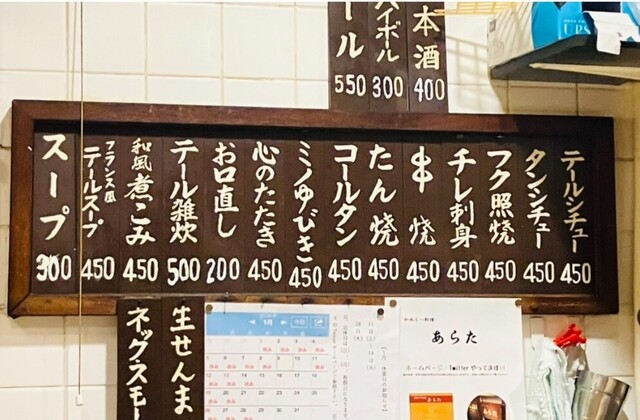 本酒
400
ハイボール
300
ール
550
テールシチュー
450
タンシチュー
450
フク照焼
450
チレ刺身
450
串焼
450
たん焼
450
コールタン
450
ミノゆびき
450
心のたたき
450
お口直し
200
テール雑炊
500
和風煮こみ
450
フランス風
テールスープ
450
スープ
300
生せんま
ネックスモー
1月
今日
あらた
ホームページ・Twitterやってます!!